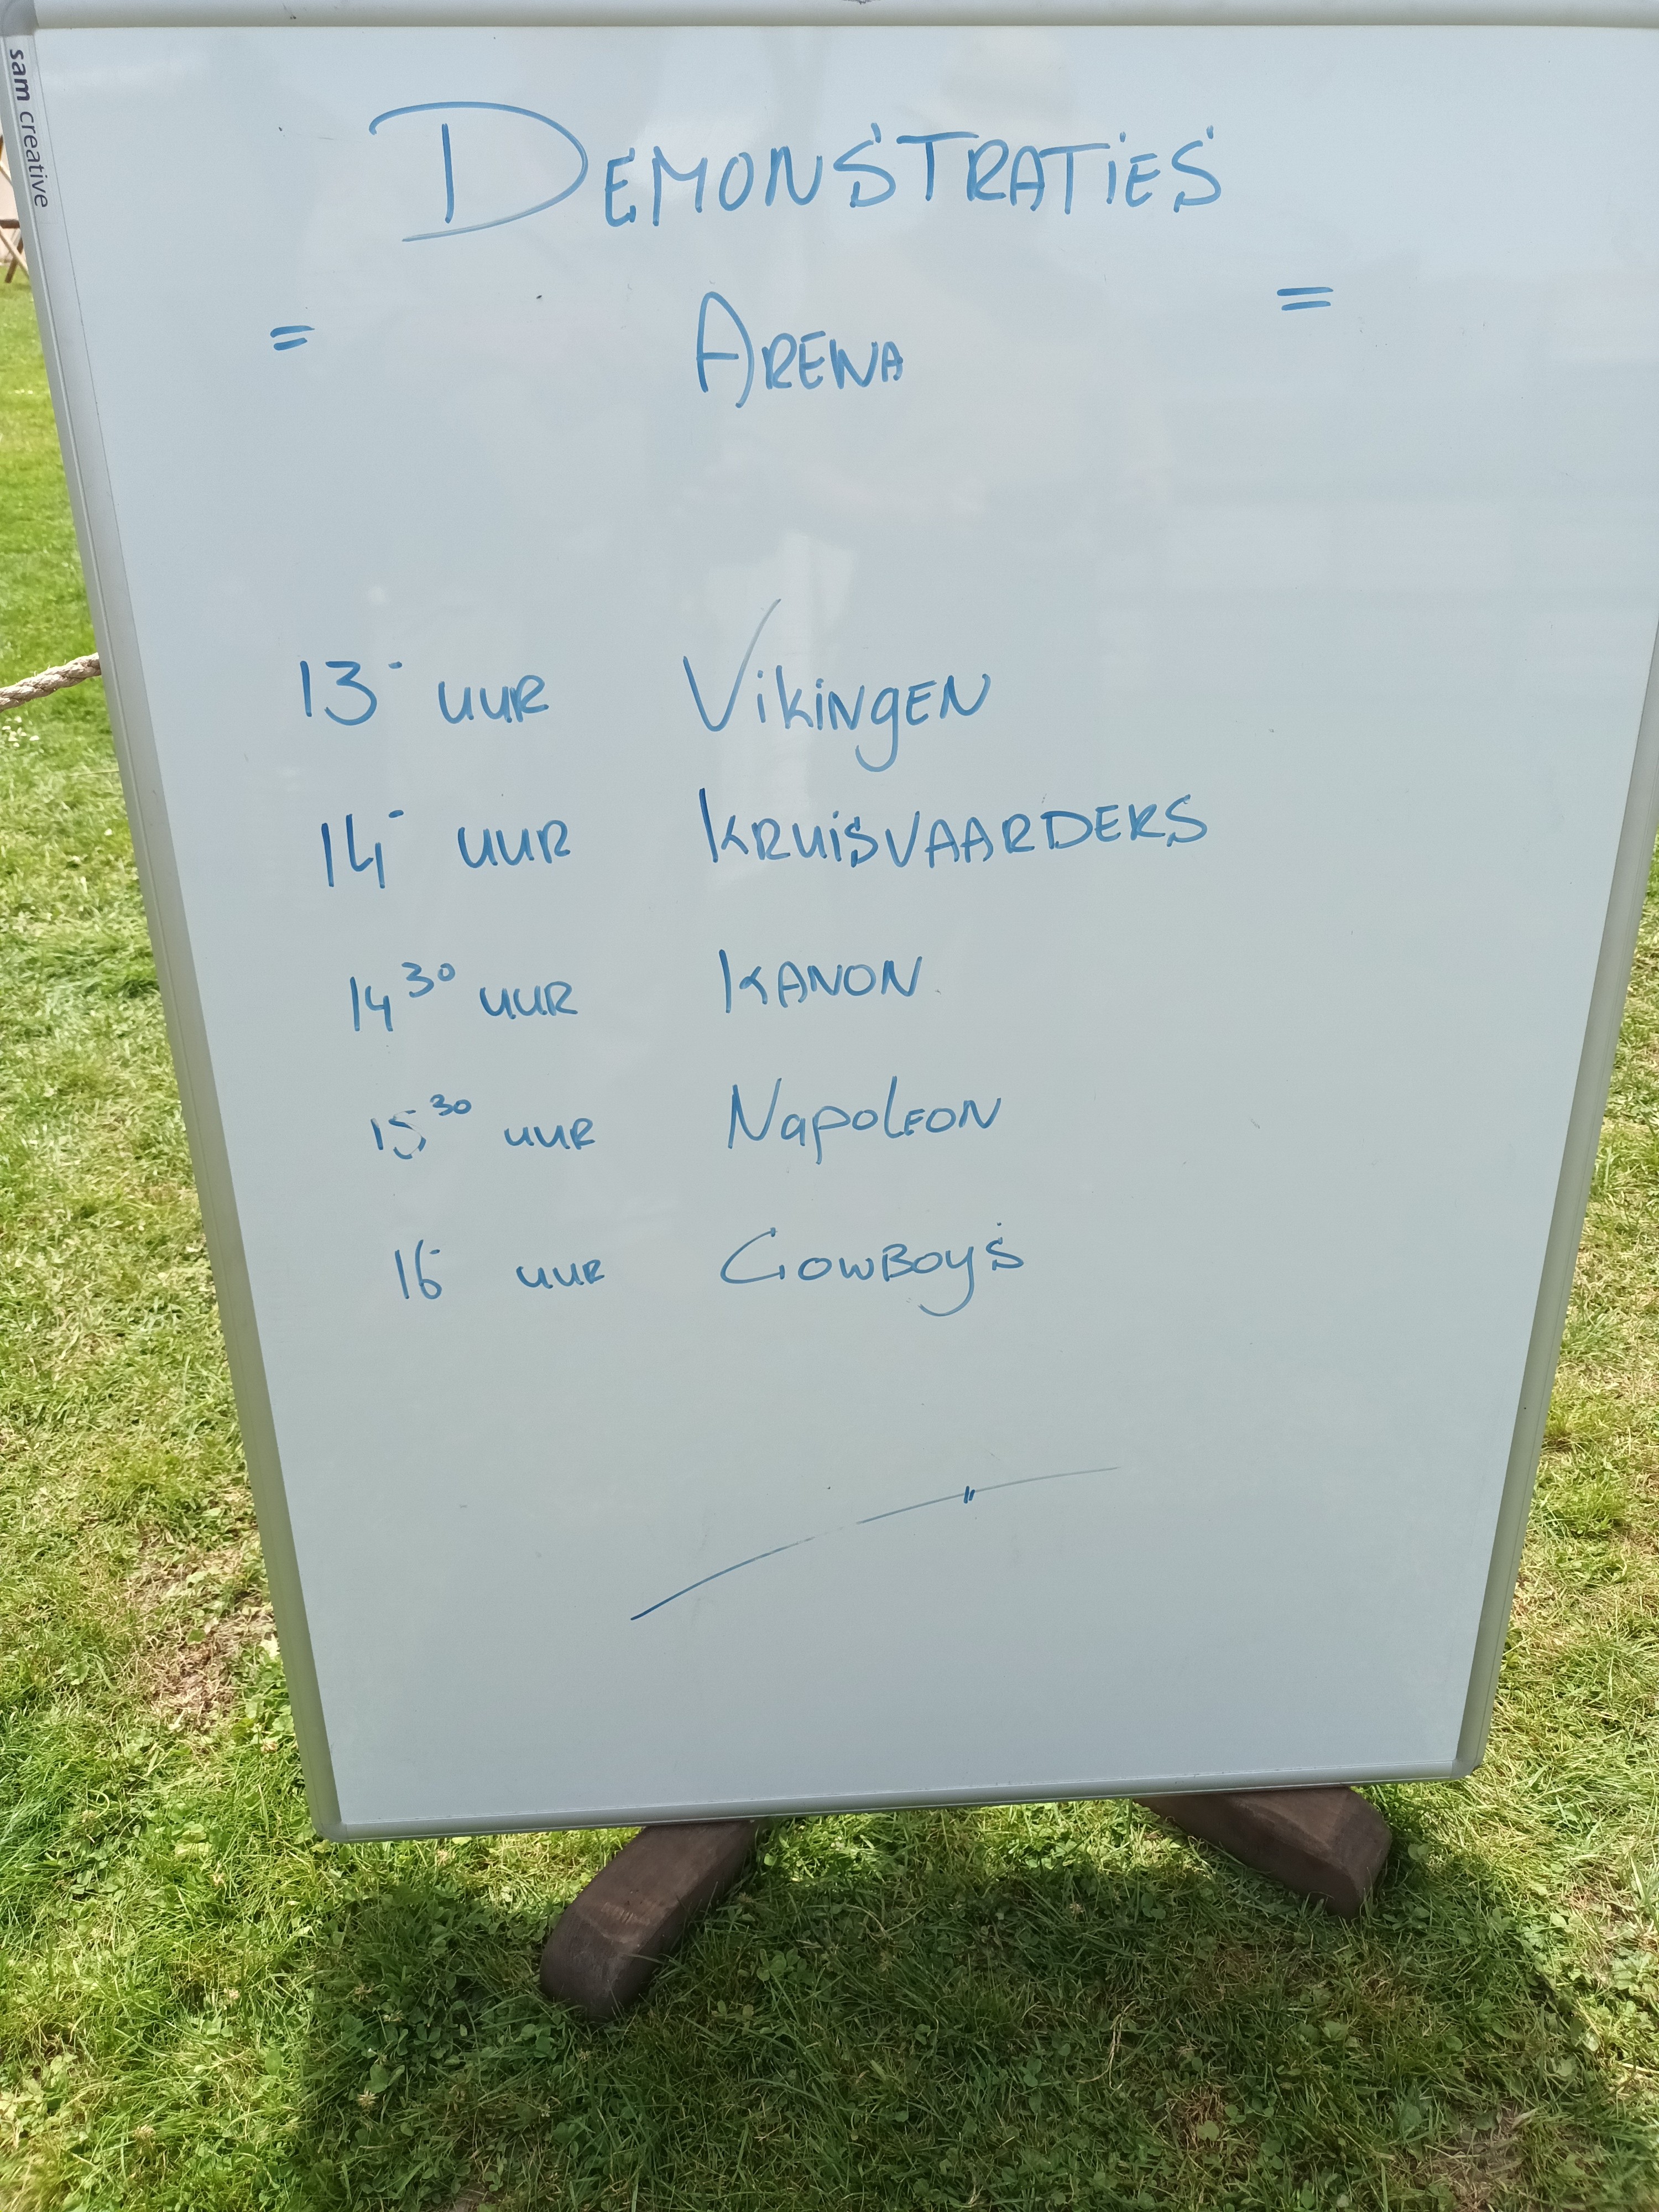 sam creative
DEMONSTRATIES
= ARENA =
13- UUR VIKINGEN
14- UUR KRUISVAARDERS
14 30 UUR KANON
15 30 UUR NAPOLEON
16- UUR COWBOYS